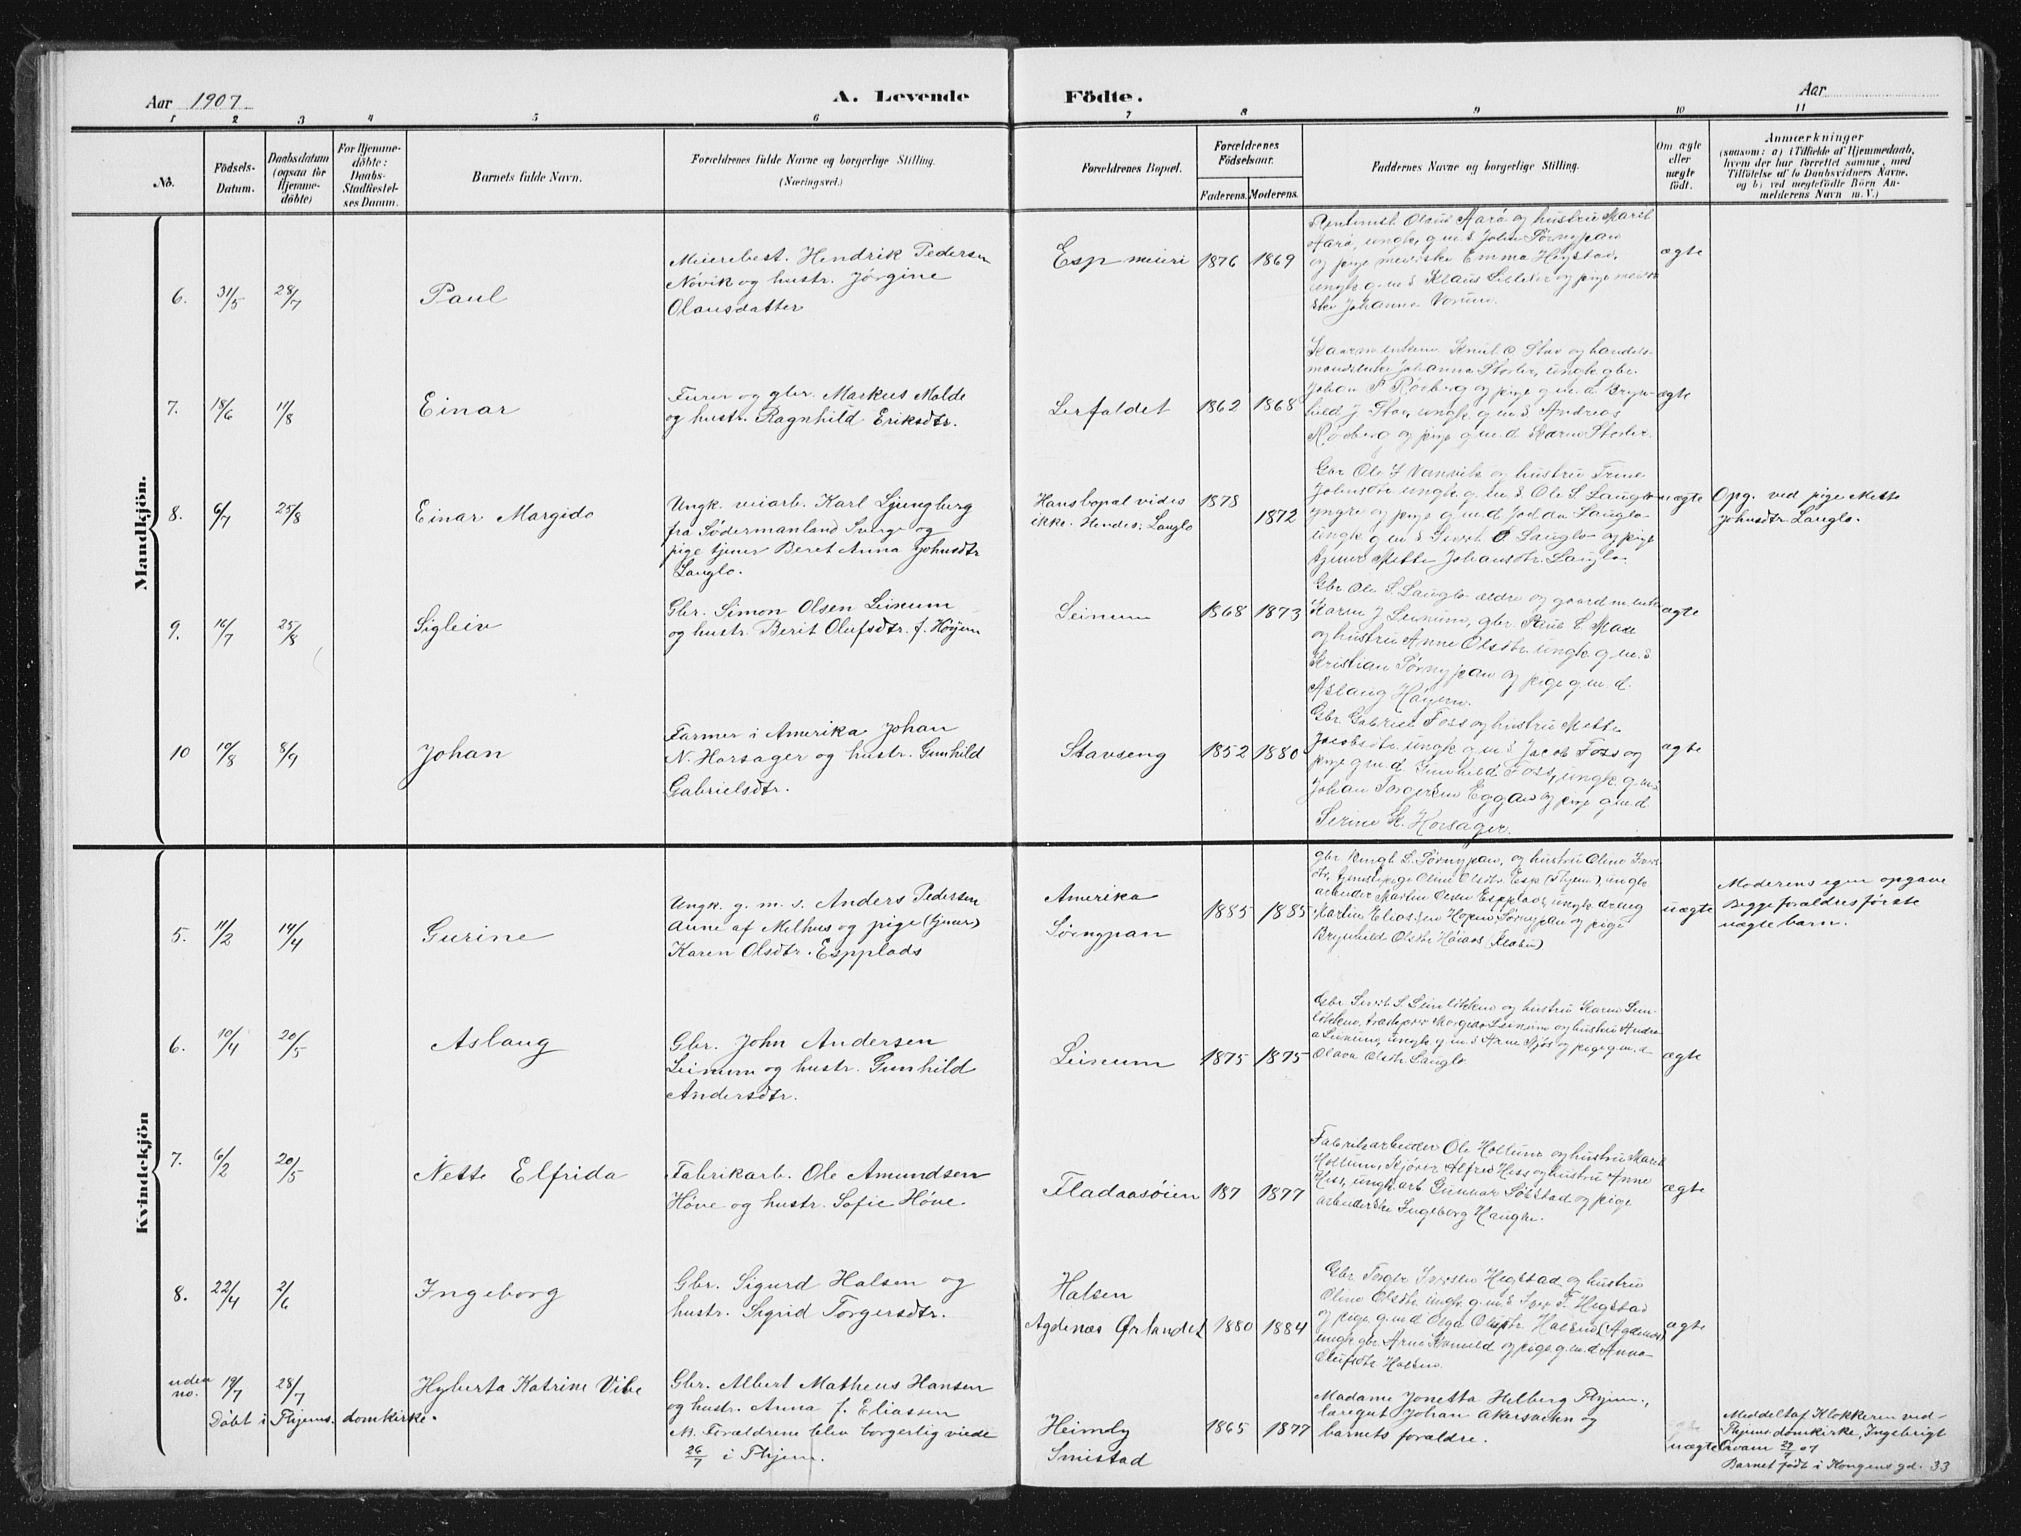 Aar 1907
A. Levende Födte.
Aar
1 2 3 4 5 6 7 8 9 10 11
No.
Födsels-
Datum.
Daabsdatum
(ogsaa for
Hjemme-
döbte)
For Hjemme-
döbte:
Daabs-
Stadfæstel-
ses Datum.
Barnets fulde Navn.
Forældrenes fulde Navne og borgerlige Stilling.
(Næringsvei.)
Forældrenes Bopæl.
Forældrenes
Födselsaar.
Faderens. Moderens.
Faddernes Navne og borgerlige Stilling.
Om ægte
eller
uægte
födt.
Anmærkninger
(saasom: a) i Tilfælde af Hjemmedaab,
hvem der har forrettet samme, med
Tilföielse af to Daabsvidners Navne.
og b) ved uægtefödte Börn An-
melderens Navn m. V.)
Mandkjön.
6. 31/5 28/7 Paul
Meierebest. Hendrik Pedersen
Növik og hustr. Jörgine
Olausdatter
Esp meieri 1876 1869
Olaus Aarö og hustru Marit
Aarö, ungk. g.m.s. John Törnypan
og pige meierske Emma Hegstad,
ungk. g.m.s. Klaus og pige meier
ske Johanna
ægte
7. 18/6 11/8 Einar
Furer og gbr. Markus Molde
og hustr. Ragnhild Eriksdtr.
Lerfaldet 1862 1868
Knut O Stav og handels-
Johanna ungk. gbr.
Johan P. Röberg og pige g.m.d. Bryn-
hild J. Stav, ungk. g.m.s. Andreas
Röberg og pige g.m.d. Karen
ægte
8. 6/7 25/8 Einar Margido
Ungk. veiarb. Karl Ljungberg
fra Södermanland Sverge og
pige tjener Beret Anna Johnsdtr
Langlo.
Hans bopæl vides
ikke. Hendes: Langlo
1878 1872
Gbr Ole J Vanvik og hustru Trine
Johnsdtr ungk. g.m.s. Ole S. Langlo
yngre og pige g.m.d. Langlo
ungk g.m.s. Sivert O Langlo og pige
tjener Mette Johansdtr. Langlo
uægte
Opg. ved pige Mette
Johnsdtr. Langlo.
9. 16/7 25/8 Sigleiv
Gbr. Simon Olsen Leinum
og hustr. Berit Olufsdtr. f. Höyem
Leinum 1868 1873
Gbr Ole S. Langlo ældre og gaardm.enke
Karen J Leinum, gbr. Paul
og hustru Anne Olsdtr. ungk g.m.s.
Kristian Törnypan og pige g.m.d.
Aslaug Höyem.
ægte
10 19/8 8/9 Johan
Farmer i Amerika Johan
N. Horsager og hustr. Gunhild
Gabrielsdtr.
Stavseng 1852 1880
Gbr. Gabriel Foss og hustru Mette
Jacobsdtr. ungk g.m.s. Jacob Foss og
pige g.m.d. Gunhild Foss, ungk. g.m.s.
Johan Torgersen Eggan og pige g.m.d
Serine K. Horsager.
ægte
Kvindekjön
5. 11/2 14/4 Gurine
Ungk. g. m. s. Anders Pedersen
Aune af Melhus og pige (tjener)
Karen Olsdtr. Espplads
Amerika
Sörnypan
1885 1885
gbr. Bengt L. Törnypan, og hustru Oline Ivers
dtr, tjenstepige Oline Olsdtr. Esp (Thjem), ungk.
arbeider Martin Olsen Esplads, ungk dreng
Martin Eliassen Hopen Sörnypan og pige
Brynhild Olsdtr Höiaas (Klæbu)
uægte
Moderens egen opgave
Begge forældres förste
uægte barn.
6. 10/4 20/5 Aslaug
Gbr. John Andersen
Leinum og hustr. Gunhild
Andersdtr.
Leinum 1875 1875
Gbr Sivert S. Leinlökken og hustru Karen Lein-
lökken, Margido Leinum og hustru Andre
a Leinum, ungk g.m.s. Arne Mjös og pige g.m.d
Olava Olsdtr. Langlo
ægte
7. 6/2 20/5 Nette Elfrida
Fabrikarb. Ole Amundsen
Höve og hustr. Sofie Höve.
Fladaasöien 187 1877
Fabrikarbeider Ole Holtum og hustru Marit
Holtum, Kjörer Alfred Hess og hustru Anne
Hess, ungk. arb. Gunnar Solstad og pige
arbeiderske Ingeborg Haugen.
ægte
8. 22/4 2/6 Ingeborg
Gbr. Sigurd Halsen og
hustr. Sigrid Torgersdtr.
Halsen
Agdenæs Ørlandet 1880 1884
Gbr Torger Iversen Hegstad og hustru
Oline Olsdtr ungk. g.m.s. Iver T. Hegstad
og pige g.m.d Olga Olsdtr. Halsen (Agdenæs)
ungk gbr Arne og pige g.m.d Anna
Olufsdtr Halsen.
ægte
uden
no. 19/7 28/7 Hyberta Katrine Vibe
Döbt i Thjems. domkirke.
Gbr. Albert Matheus Hansen
og hustr. Anna f. Eliassen
N. Forældrene blev borgerlig viede
26/7 i Thjem.
Heimly
Smistad
1865 1877
Madame Jonetta Helberg Thjem,
læregut Johan Akersvehn og
barnets forældre.
uægte
Meddelt af Klokkeren ved
Thjems domkirke, Ingebrigt
Orvam 29/7 07
Barnet födt i Kongens gd. 33